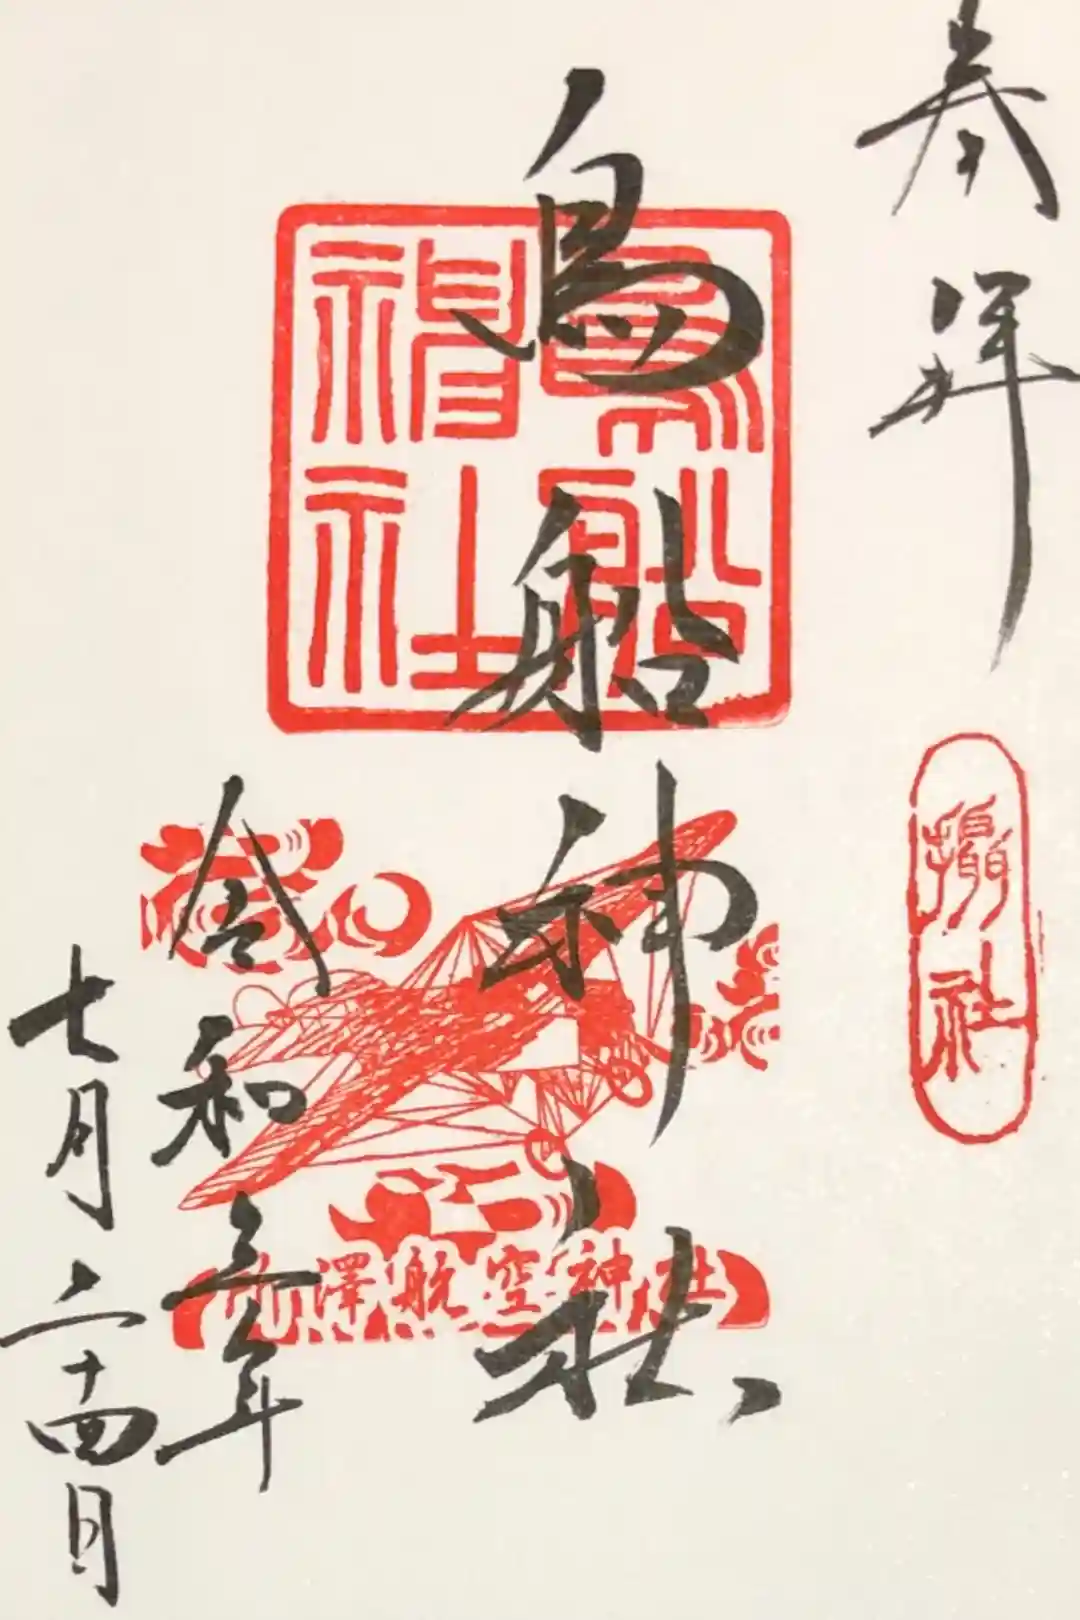 奉拝
攝社
鳥船神社
鳥船神社
所澤航空神社
令和五年
七月二十四日